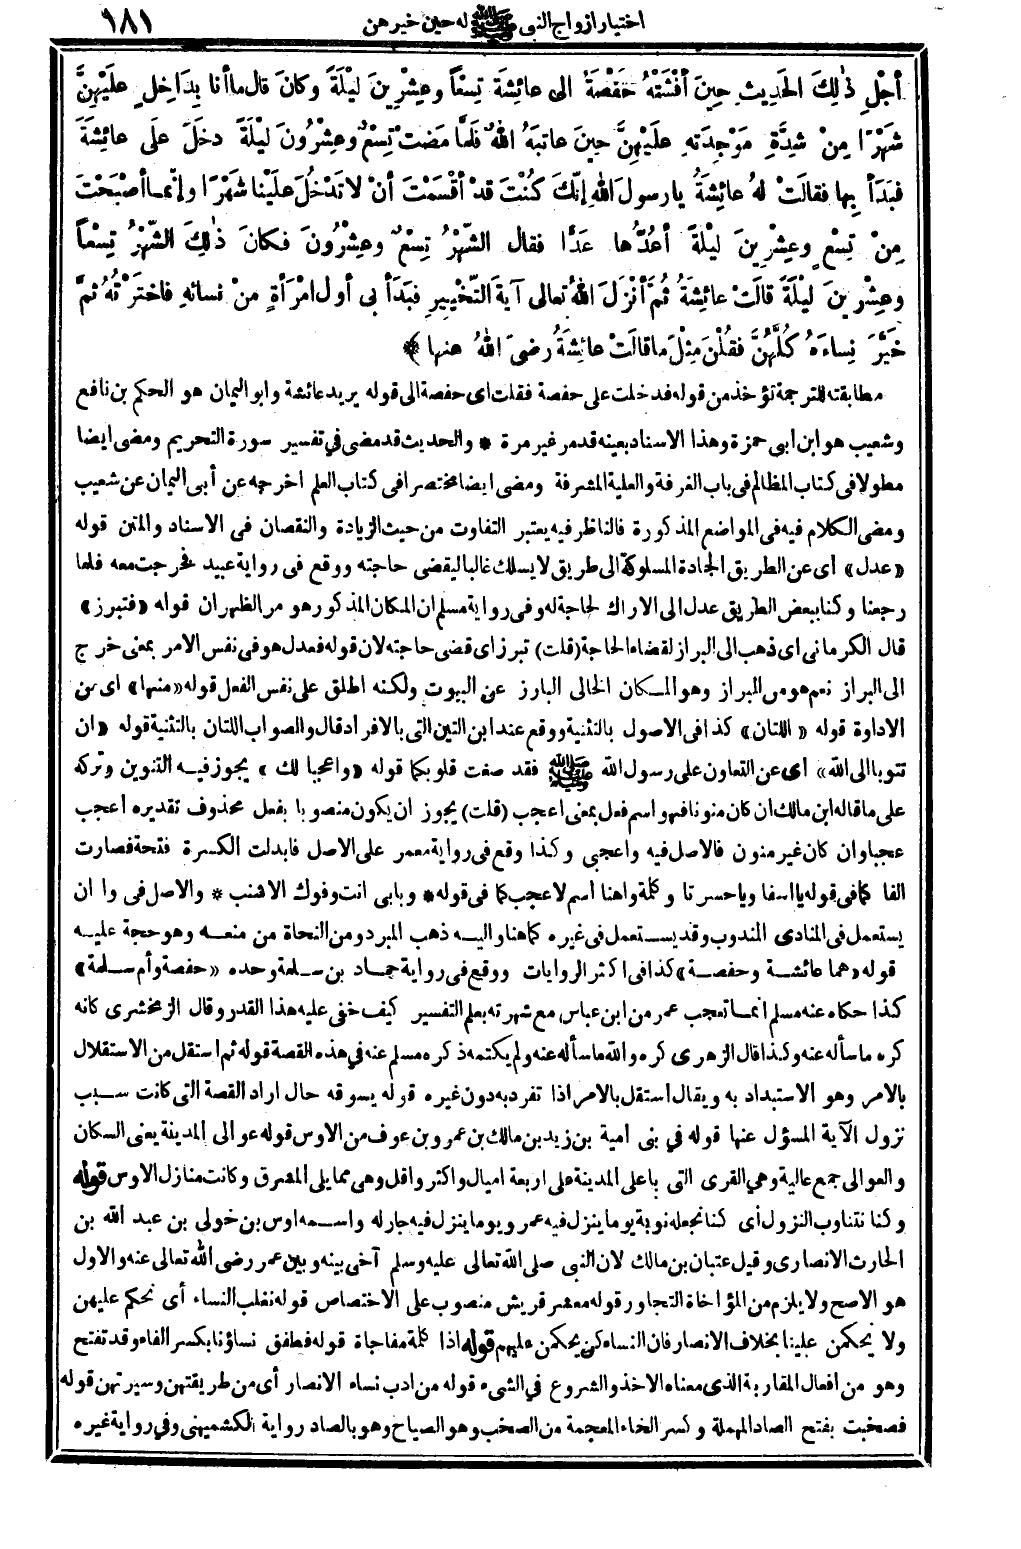 اختيار ازواج النبى ﷺ له حين خيرهن ١٨١
أجْلِ ذٰلِكَ الحَدِيثِ حِينَ أفْشَتْهُ حَفْصَةُ الى عائِشَةَ تِسْعاً وعِشْرِينَ لَيْلَةً وكانَ قال ما أنا بِدَاخِلٍ علَيْهِنَّ
شَهْرًا مِنْ شِدَّةِ مَوْجِدَتِهِ علَيْهِنَّ حِينَ عاتبَهُ اللهُ فَلمَّا مَضَتْ تِسْعٌ وعِشْرُونَ لَيْلَةً دخَلَ علَى عائِشَةَ
فبَدَأ بِها فقالَتْ لهُ عائِشَةُ يا رسولَ اللهِ إنَّكَ كُنْتَ قدْ أقْسَمْتَ أنْ لا تَدْخُلَ علَيْنا شَهْرًا وإنَّما أصْبَحْتَ
مِنْ تِسْعٍ وعِشْرِينَ لَيْلَةً أعُدُّها عَدًّا فقال الشَّهْرُ تِسْعٌ وعِشْرُونَ فكانَ ذٰلِكَ الشَّهْرُ تِسْعاً
وعِشْرِينَ لَيْلَةً قالَتْ عائِشَةُ ثُمَّ أنْزَلَ اللهُ تعالى آيةَ التَّخْيِيرِ فبَدَأ بى أولَ امْرَأةٍ مِنْ نسائهِ فاخترْتُهُ ثمَّ
خَيَّرَ نِساءَهُ كُلَّهُنَّ فقُلْنَ مِثْلَ ما قالَتْ عائِشَةُ رضىَ اللهُ عنها ﴾
مطابقته للترجمة تؤخذ من قوله فدخلت على حفصة فقلت اى حفصة الى قوله يريد عائشة وابو اليمان هو الحكم بن نافع
وشعيب هو ابن ابى حمزة وهذا الاسناد بعينه قد مر غير مرة * والحديث قد مضى في تفسير سورة التحريم ومضى ايضا
مطولا فى كتاب المظالم فى باب الغرفة والعلية المشرفة ومضى ايضا مختصرا فى كتاب العلم اخرجه عن أبى اليمان عن شعيب
ومضى الكلام فيه فى المواضع المذكورة فالناظر فيه يعتبر التفاوت من حيث الزيادة والنقصان فى الاسناد والمتن قوله
«عدل» اى عن الطريق الجادة المسلوكة الى طريق لا يسلك غالبا ليقضى حاجته ووقع فى رواية عبيد فخرجت معه فلما
رجعنا وكنا ببعض الطريق عدل الى الاراك لحاجة له وفى رواية مسلم ان المكان المذكور هو مر الظهران قوله «فتبرز»
قال الكرمانى اى ذهب الى البراز لقضاء الحاجة (قلت) تبرز اى قضى حاجته لان قوله فعدل هو فى نفس الامر بمعنى خرج
الى البراز نعم هو من البراز وهو المكان الخالى البارز عن البيوت ولكنه اطلق على نفس الفعل قوله «منها» اى من
الاداوة قوله «اللتان» كذا فى الاصول بالتثنية ووقع عند ابن التين التى بالافراد قال والصواب اللتان بالتثنية قوله «ان
تتوبا الى الله» أى عن التعاون على رسول الله ﷺ فقد صغت قلوبكما قوله «واعجبا لك» يجوز فيه التنوين وتركه
على ما قاله ابن مالك ان كان منونا فهو اسم فعل بمعنى اعجب (قلت) يجوز ان يكون منصوبا بفعل محذوف تقديره اعجب
عجبا وان كان غير منون فالاصل فيه واعجبى وكذا وقع فى رواية معمر على الاصل فابدلت الكسرة فتحة فصارت
الفا كما فى قوله يا اسفا ويا حسرتا وكلمة واهنا اسم لاعجب كما فى قوله * وبابى انت وفوك الاشنب * والاصل فى وا ان
يستعمل فى المنادى المندوب وقد يستعمل فى غيره كما هنا واليه ذهب المبرد ومن النحاة من منعه وهو حجة عليه
قوله «هما عائشة وحفصة» كذا فى اكثر الروايات ووقع فى رواية حماد بن سلمة وحده «حفصة وأم سلمة»
كذا حكاه عنه مسلم انما تعجب عمر من ابن عباس مع شهرته بعلم التفسير كيف خفى عليه هذا القدر وقال الزمخشرى كانه
كره ما سأله عنه وكذا قال الزهرى كره والله ما سأله عنه ولم يكتمه ذكره مسلم عنه فى هذه القصة قوله ثم استقل من الاستقلال
بالامر وهو الاستبداد به ويقال استقل بالامر اذا تفرد به دون غيره قوله يسوقه حال اراد القصة التى كانت سبب
نزول الآية المسؤل عنها قوله في بنى امية بن زيد بن مالك بن عمرو بن عوف من الاوس قوله عوالى المدينة يعنى السكان
والعوالى جمع عالية وهي القرى التى باعلى المدينة على اربعة اميال واكثر واقل وهى مما يلى المشرق وكانت منازل الاوس قوله
وكنا نتناوب النزول أى كنا نجعله نوبة يوما ينزل فيه عمر ويوما ينزل فيه جار له واسمه اوس بن خولى بن عبد الله بن
الحارث الانصارى وقيل عتبان بن مالك لان النبى صلى الله تعالى عليه وسلم آخى بينه وبين عمر رضى الله تعالى عنه والاول
هو الاصح ولا يلزم من المؤاخاة التجاور قوله معشر قريش منصوب على الاختصاص قوله نغلب النساء أى نحكم عليهن
ولا يحكمن علينا بخلاف الانصار فان النساء كن يحكمن عليهم قوله اذا كلمة مفاجاة قوله فطفق نساؤنا بكسر الفاء وقد تفتح
وهو من افعال المقاربة الذى معناه الاخذ والشروع في الشىء قوله من ادب نساء الانصار أى من طريقتهن وسيرتهن قوله
فصخبت بفتح الصاد المهملة وكسر الخاء المعجمة من الصخب وهو الصياح وهو بالصاد رواية الكشميهنى وفي رواية غيره